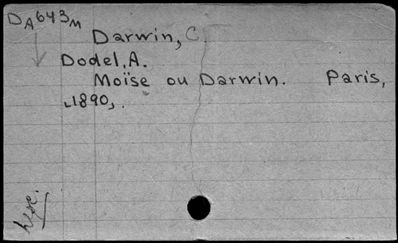 DA643M
Darwin, C.
Dodel, A.
Moïse ou Darwin. Paris,
1890,.